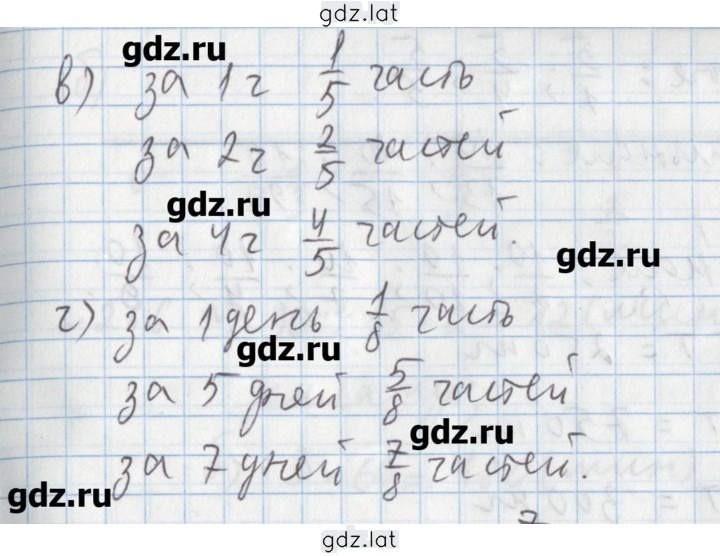 gdz.lat
gdz.ru
в) за 1 ч 1/5 часть
за 2 ч 2/5 частей
gdz.ru
за 4 ч 4/5 частей.
gdz.ru
г) за 1 день 1/8 часть
gdz.ru
за 5 дней 5/8 частей
gdz.ru
за 7 дней 7/8 частей.
gdz.ru
gdz.lat